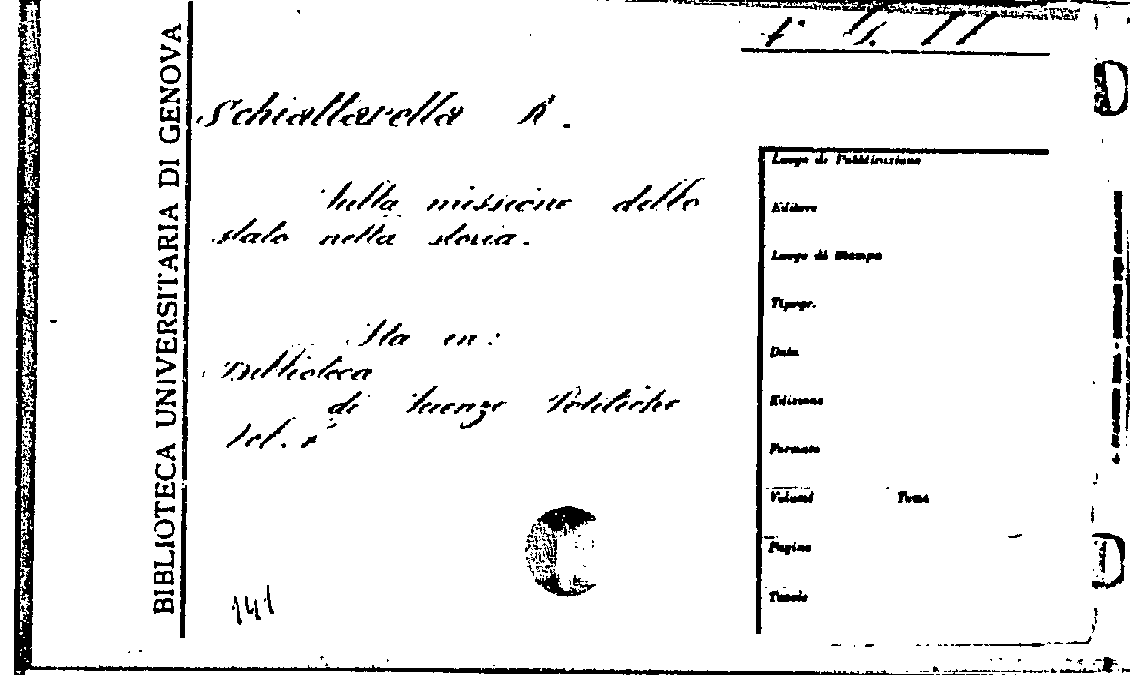 BIBLIOTECA UNIVERSITARIA DI GENOVA
Schiattarella R.
Sulla missione dello
stato nella storia.
Sta in:
Biblioteca
di Scienze Politiche
Vol.
141
Luogo di Pubblicazione
Editore
Luogo di Stampa
Tipogr.
Data
Edizione
Formato
Volumi Tomo
Pagine
Tavole